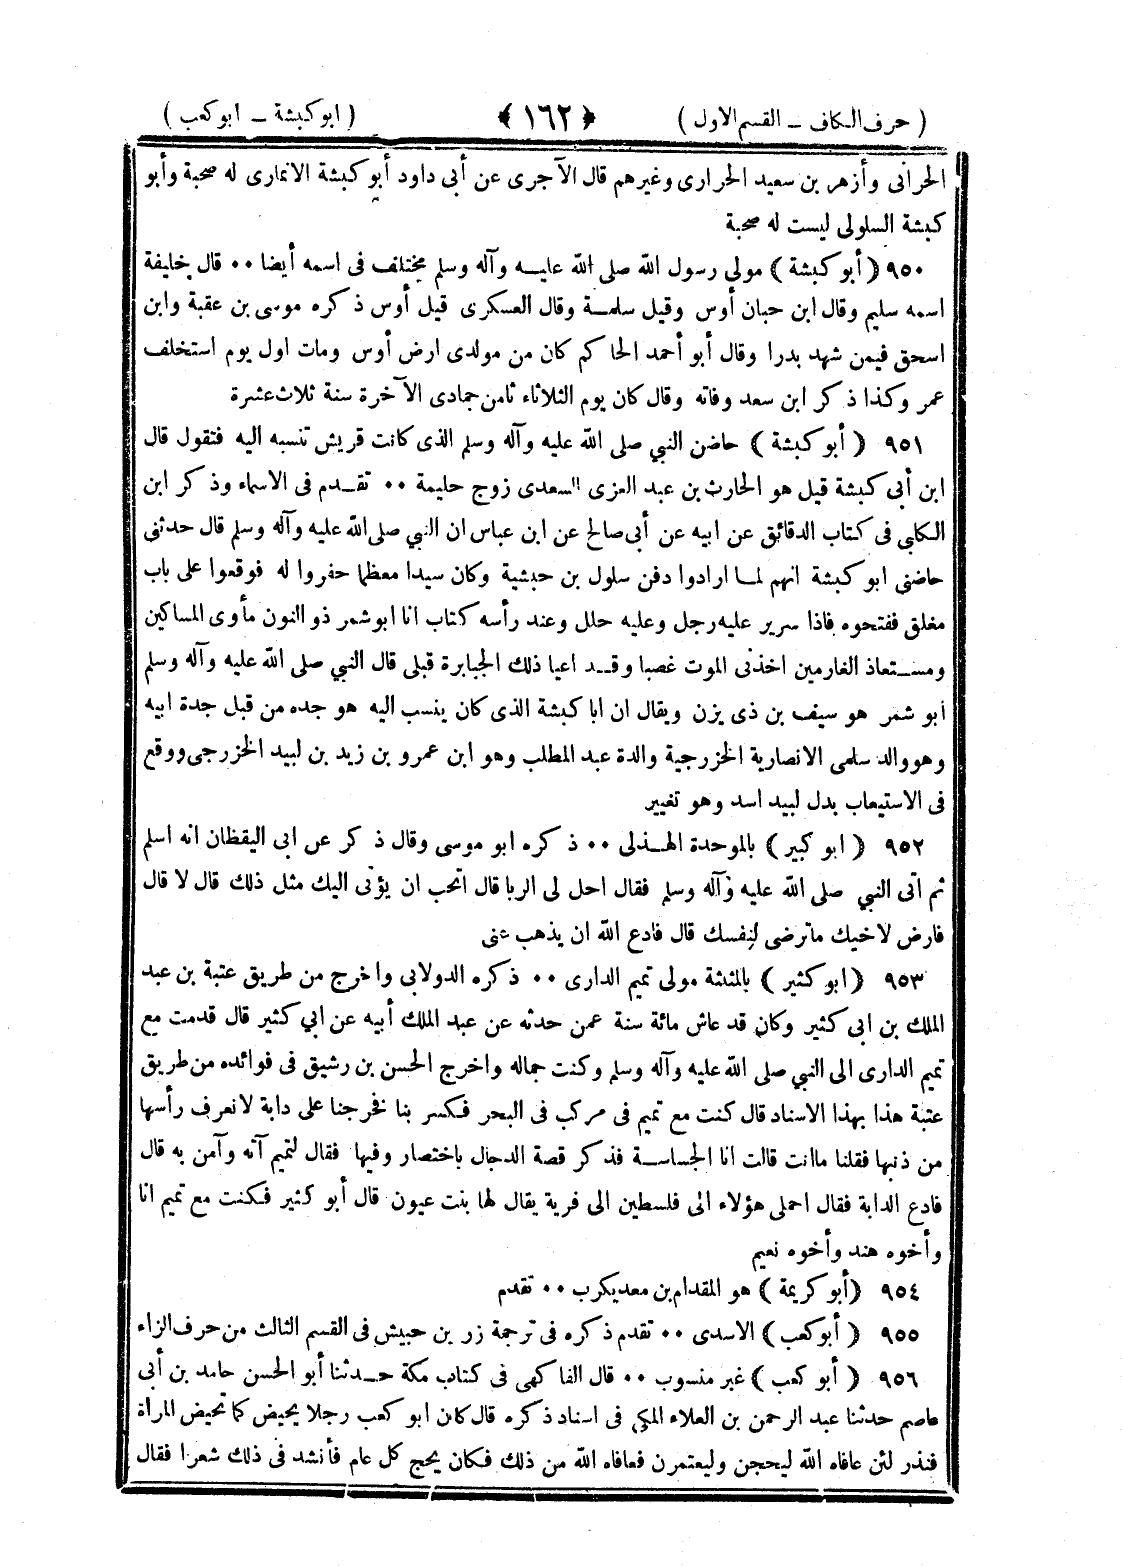 ( حرف الكاف – القسم الاول ) ﴿ ١٦٢ ﴾ ( ابو كبشة – ابو كعب )
الحرانى وأزهر بن سعيد الحرارى وغيرهم قال الآجرى عن أبى داود أبو كبشة الانمارى له صحبة وأبو
كبشة السلولى ليست له صحبة
٩٥٠ ( أبو كبشة ) مولى رسول الله صلى الله عليه وآله وسلم مختلف فى اسمه أيضا ٠٠ قال خليفة
اسمه سليم وقال ابن حبان أوس وقيل سلمة وقال العسكرى قيل أوس ذكره موسى بن عقبة وابن
اسحق فيمن شهد بدرا وقال أبو أحمد الحاكم كان من مولدى ارض أوس ومات اول يوم استخلف
عمر وكذا ذكر ابن سعد وفاته وقال كان يوم الثلاثاء ثامن جمادى الآخرة سنة ثلاث عشرة
٩٥١ ( أبو كبشة ) حاضن النبي صلى الله عليه وآله وسلم الذى كانت قريش تنسبه اليه فتقول قال
ابن أبى كبشة قيل هو الحارث بن عبد العزى السعدى زوج حليمة ٠٠ تقدم فى الاسماء وذكر ابن
الكلبى فى كتاب الدقائق عن ابيه عن أبى صالح عن ابن عباس ان النبي صلى الله عليه وآله وسلم قال حدثنى
حاضنى ابو كبشة انهم لما ارادوا دفن سلول بن حبشية وكان سيدا معظما حفروا له فوقعوا على باب
مغلق ففتحوه فاذا سرير عليه رجل وعليه حلل وعند رأسه كتاب انا ابو شمر ذو النون مأوى المساكين
ومستعاذ الغارمين اخذنى الموت غصبا وقد اعيا ذلك الجبابرة قبلى قال النبي صلى الله عليه وآله وسلم
ابو شمر هو سيف بن ذى يزن ويقال ان ابا كبشة الذى كان ينسب اليه هو جده من قبل جدة ابيه
وهو والد سلمى الانصارية الخزرجية والدة عبد المطلب وهو ابن عمرو بن زيد بن لبيد الخزرجى ووقع
فى الاستيعاب بدل لبيد اسد وهو تغيير
٩٥٢ ( ابو كبير ) بالموحدة الهذلى ٠٠ ذكره ابو موسى وقال ذكر عن ابى اليقظان انه اسلم
ثم اتى النبي صلى الله عليه وآله وسلم فقال احل لى الربا قال اتحب ان يؤتى اليك مثل ذلك قال لا قال
فارض لاخيك ماترضى لنفسك قال فادع الله ان يذهب عنى
٩٥٣ ( ابو كثير ) بالمثلثة مولى تميم الدارى ٠٠ ذكره الدولابى واخرج من طريق عتبة بن عبد
الملك بن ابى كثير وكان قد عاش مائة سنة عمن حدثه عن عبد الملك أبيه عن ابي كثير قال قدمت مع
تميم الدارى الى النبي صلى الله عليه وآله وسلم وكنت جماله واخرج الحسن بن رشيق فى فوائده من طريق
عتبة هذا بهذا الاسناد قال كنت مع تميم فى مركب فى البحر فكسر بنا فخرجنا على دابة لانعرف رأسها
من ذنبها فقلنا ماانت قالت انا الجساسة فذكر قصة الدجال باختصار وفيها فقال لتميم آته وآمن به قال
فادع الدابة فقال احملى هؤلاء الى فلسطين الى قرية يقال لها بنت عيون قال أبو كثير فكنت مع تميم انا
وأخوه هند وأخوه نعيم
٩٥٤ ( أبو كريمة ) هو المقدام بن معديكرب ٠٠ تقدم
٩٥٥ ( أبو كعب ) الاسدى ٠٠ تقدم ذكره فى ترجمة زر بن حبيش فى القسم الثالث من حرف الزاء
٩٥٦ ( أبو كعب ) غير منسوب ٠٠ قال الفاكهى فى كتاب مكة حدثنا أبو الحسن حامد بن أبى
عاصم حدثنا عبد الرحمن بن العلاء المكى فى اسناد ذكره قال كان ابو كعب رجلا يحيض كما تحيض المرأة
فنذر لئن عافاه الله ليحجن وليعتمرن فعافاه الله من ذلك فكان يحج كل عام فأنشد فى ذلك شعرا فقال